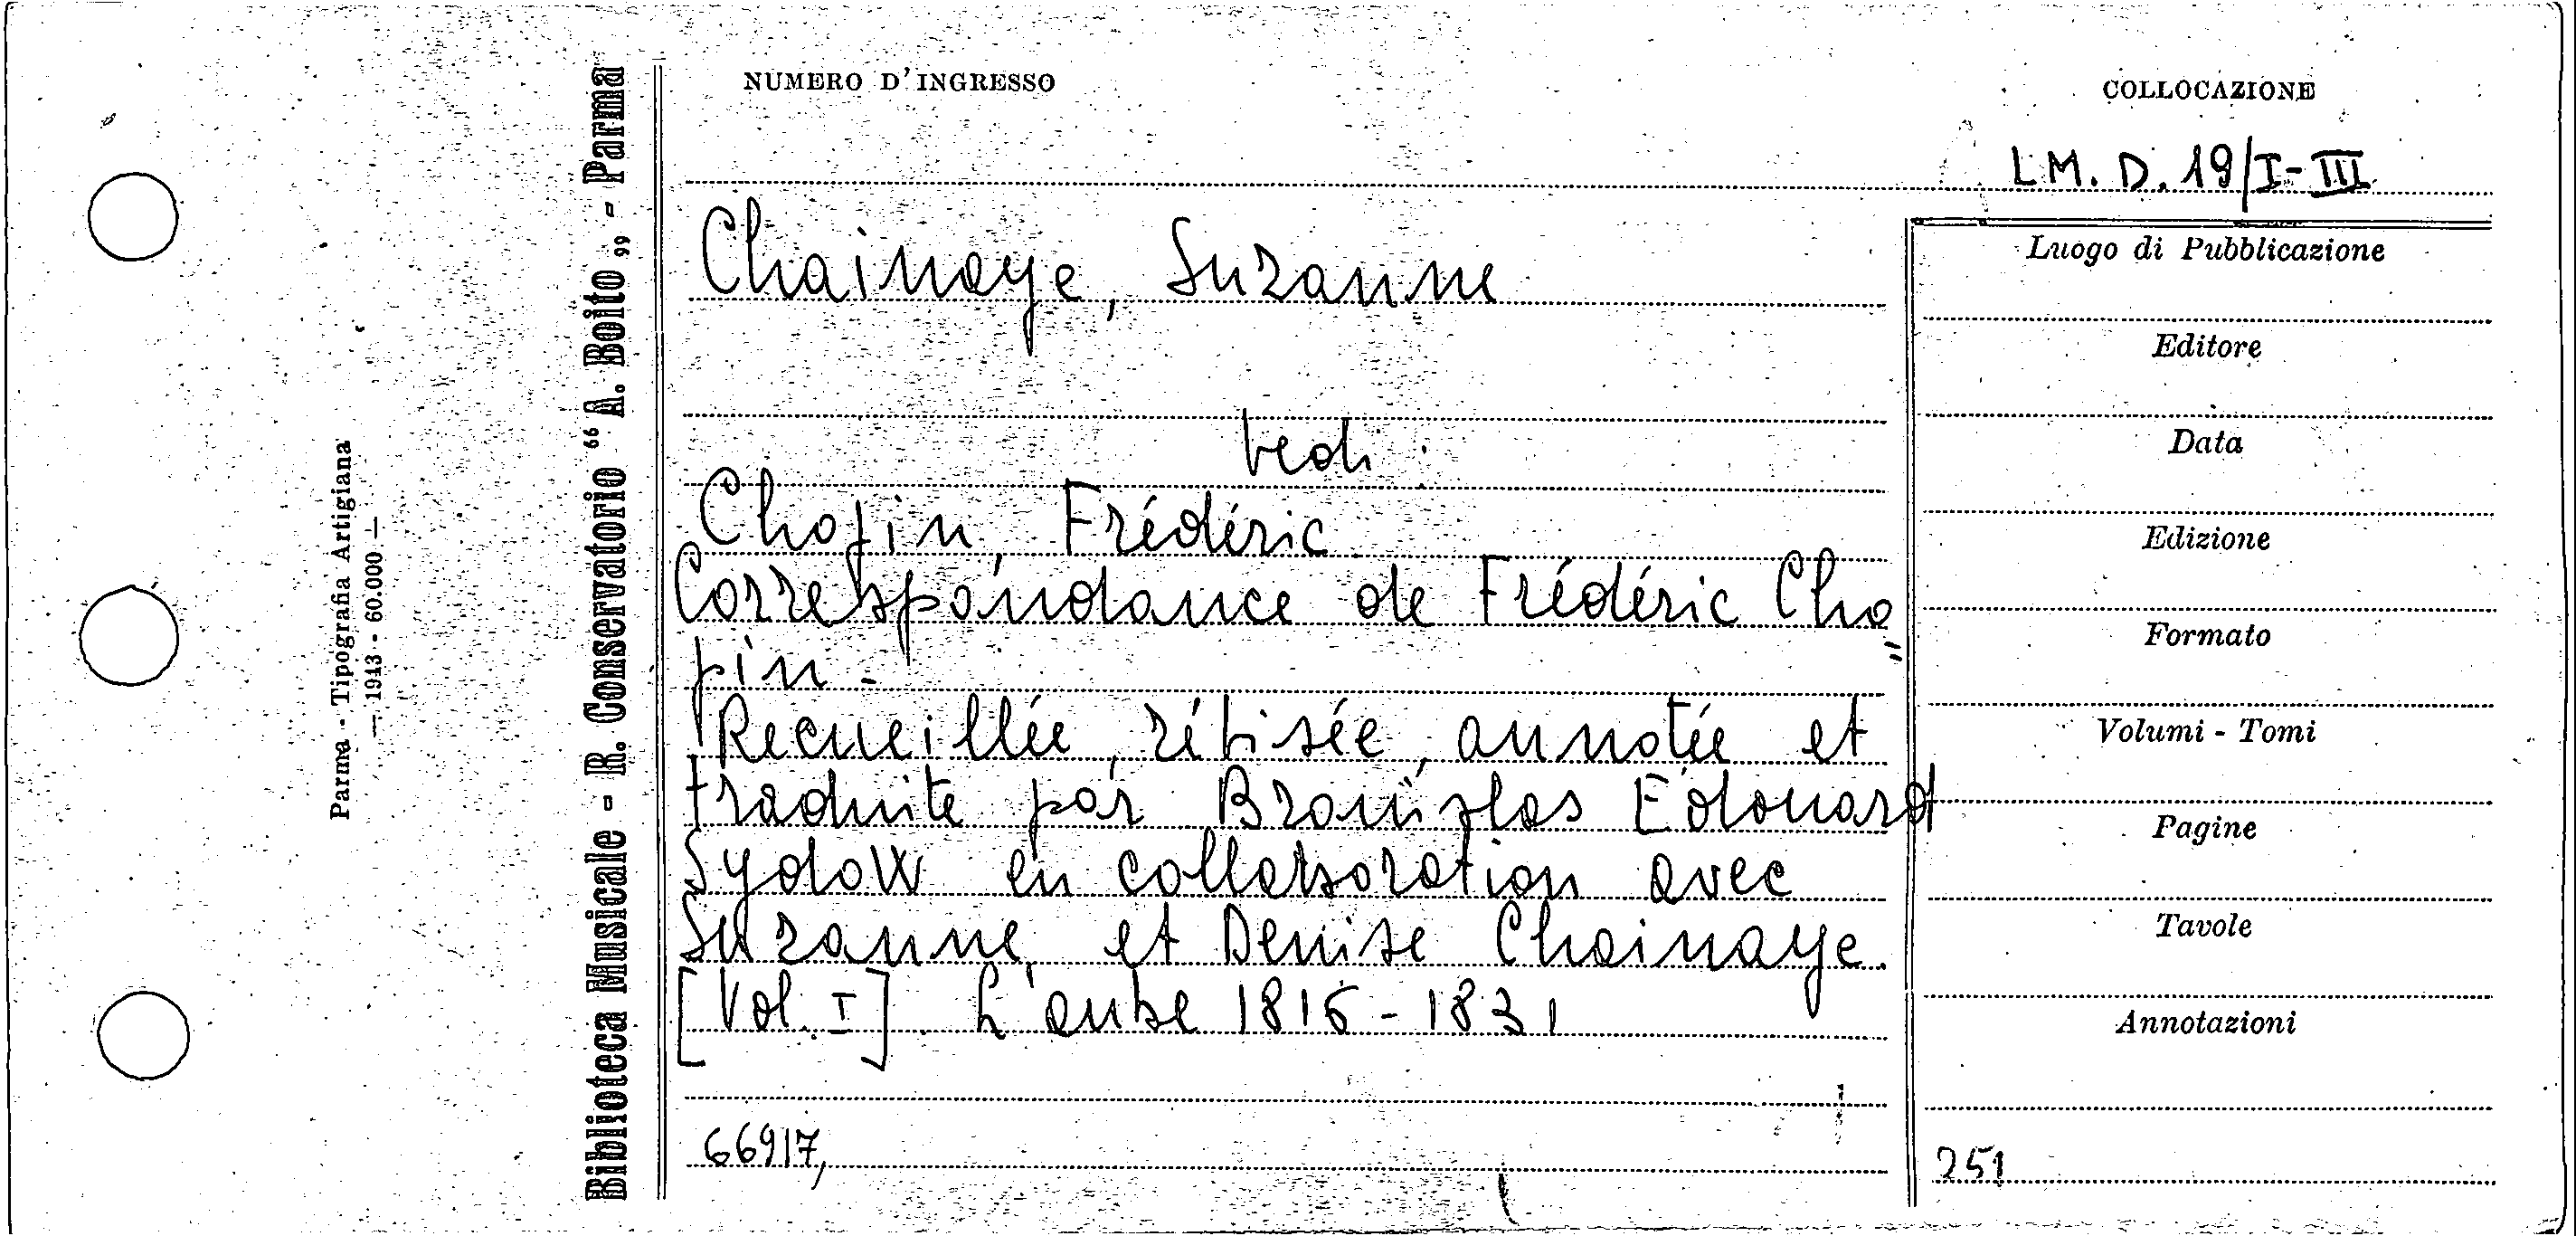 NUMERO D'INGRESSO
COLLOCAZIONE
L M. D. 19/I-III
Chainaye, Suzanne
vedi
Chopin, Frédéric
Correspondance de Frédéric Cho=
pin -
Recueillée, révisée, annotée et
traduite par Bronislas Édouard
Sydow en collaboration avec
Suzanne et Denise Chainaye.
[Vol. I]. L'aube 1816 - 1831
66917,
Luogo di Pubblicazione
Editore
Data
Edizione
Formato
Volumi - Tomi
Pagine
Tavole
Annotazioni
251
Biblioteca Musicale - R. Conservatorio "A. Boito„ - Parma
Parma - Tipografia Artigiana
— 1943 - 60.000 —